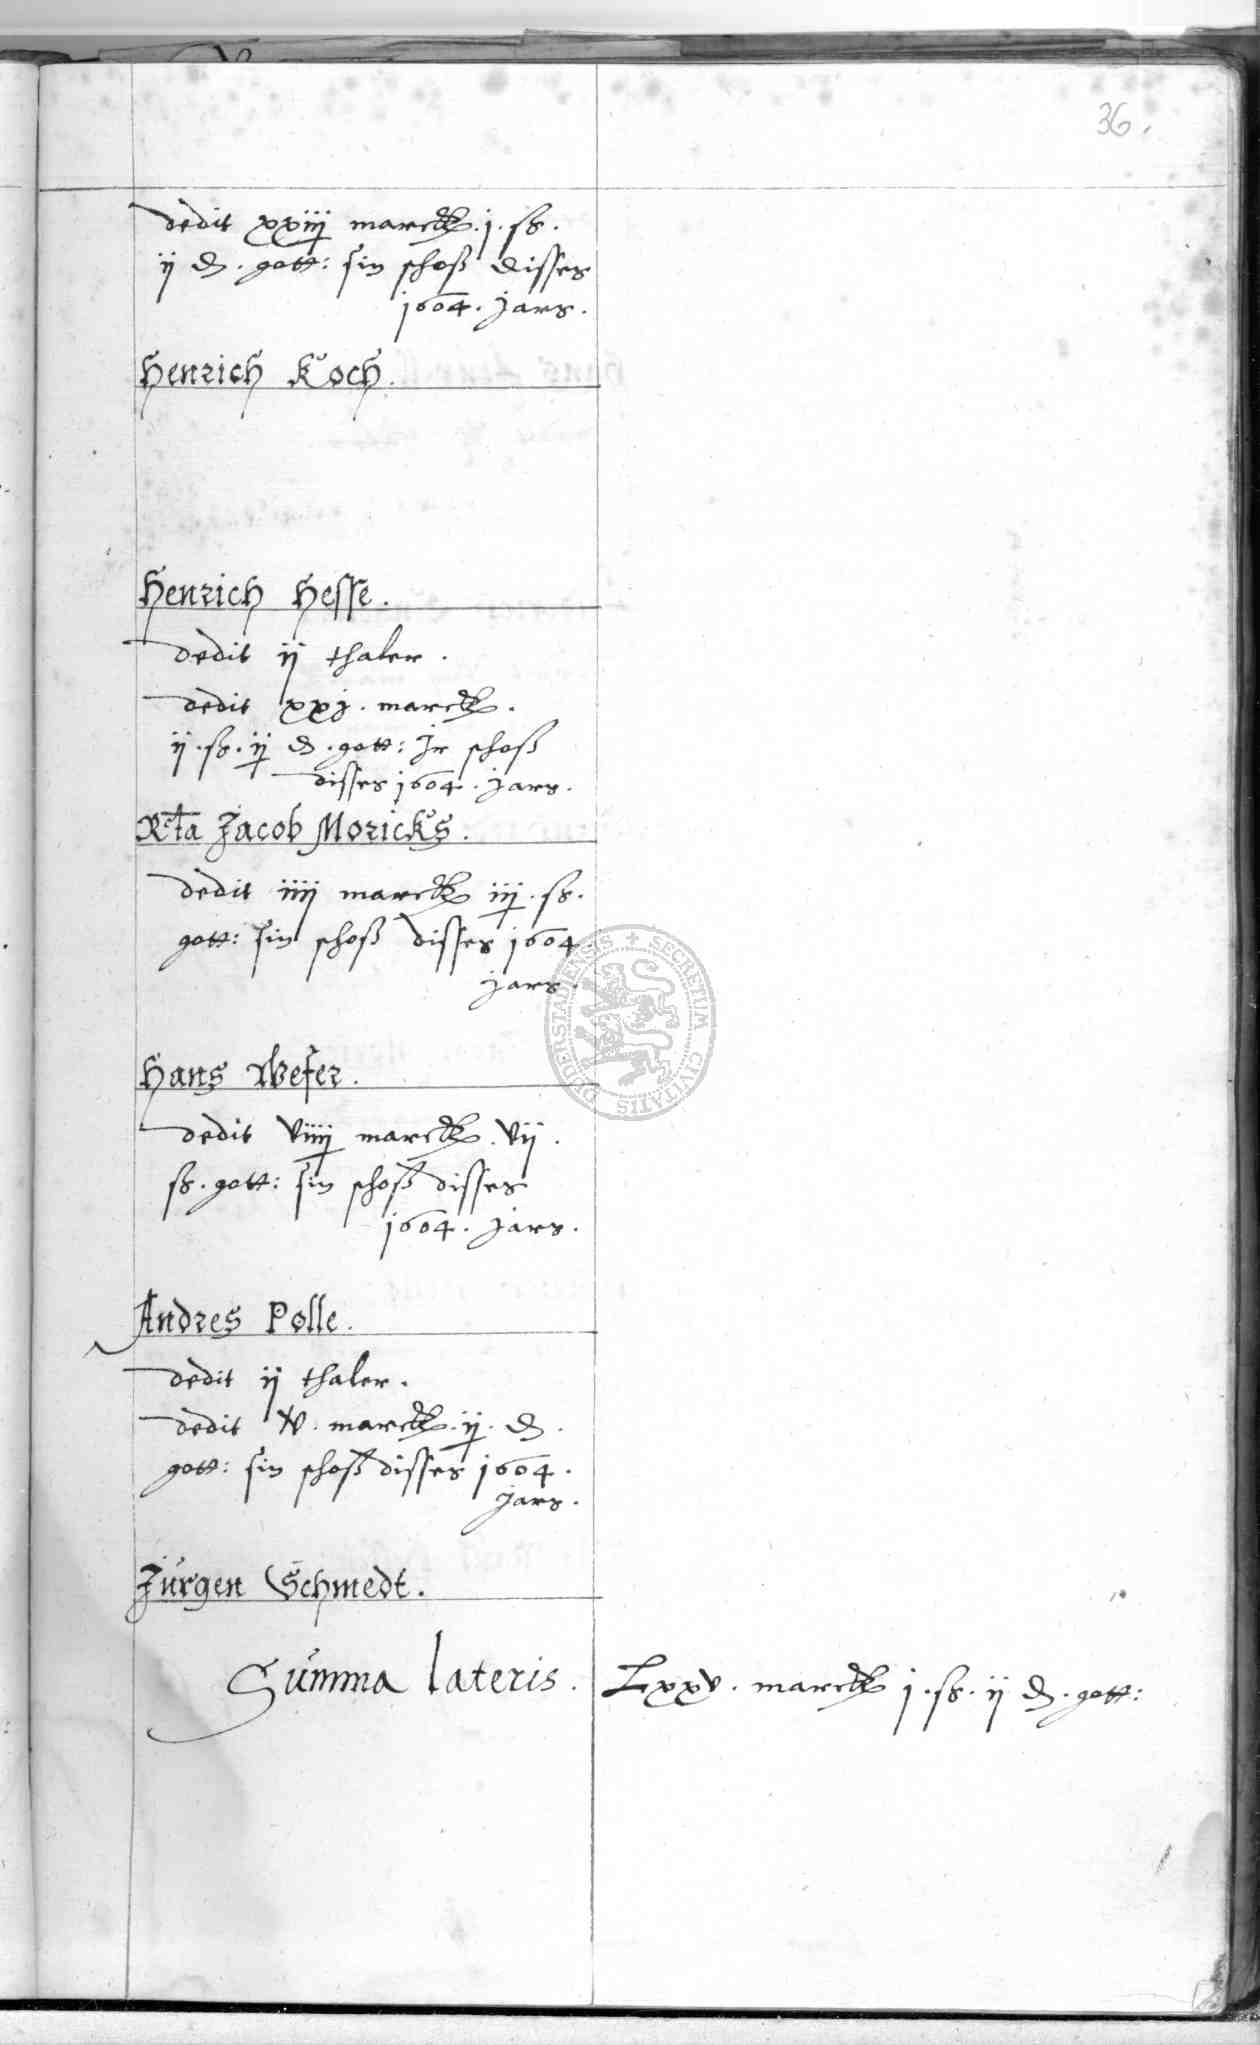 36.
dedit xxiiij marck. j. ss.
ij d. gott: sin schoß disses
1604. jars.
Henrich Koch.
Henrich Hesse.
dedit ij thaler.
dedit xxj. marck.
ij. ss. ij d. gott: Jr schoß
disses 1604. jars.
Rta Jacob Moricks.
dedit iiij marck iij. ss.
gott: sin schoß disses 1604.
jars.
Hans Wefer.
dedit viiij marck. vij.
ss. gott: sin schoß disses
1604. jars.
Andres Polle.
dedit ij thaler.
dedit xv. marck. ij. d.
gott: sin schoß disses 1604.
jars.
Jürgen Schmedt.
Summa lateris. Lxxv. marck j. ss. ij d. gott:
SECRETUM CIVITATIS DUDERSTADIENSIS